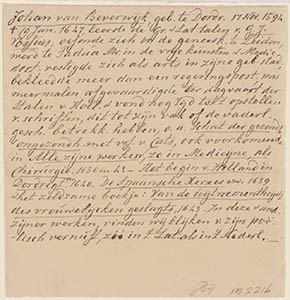 Johan van Beverwijk, geb. te Dordr. 17 Nov. 1594
† 19 Jan. 1647 leerde de Gr. & Lat. talen v. G.J.
Vossius, oefende zich in de geneesk. te Leiden
werd te Padua Mr. in de vrije kunsten & Medic.
doct. vestigde zich als arts in zijne geb. stad.
bekleedde meer dan een regeringspost, was
meermalen afgevaardigde ter dagvaart der
Staten v. Holl. & vond nog tijd tot 't opstellen
v. schriften, die tot zijn vak of de vaderl.
gesch. betrekk. hebben, o.a. Schat der gezondh.
& ongezondh. met v. Cats, ook voorkomende
in Alle zijne werken, zo in Medicijne als
Chirurgie 1680 in 4o — Het begin v. Holland in
Dordrecht 1640. De Spaensche Xerxes enz. 1639
& het zeldzame boekje: Van de Uijtnementheijt
des vrouwelijcken geslagts, 1643. In deze & and.
zijner werken, vinden wij blijken v. zijn poë-
tisch vernuft, zoo in 't Lat. als in 't Nederl.
M 2216